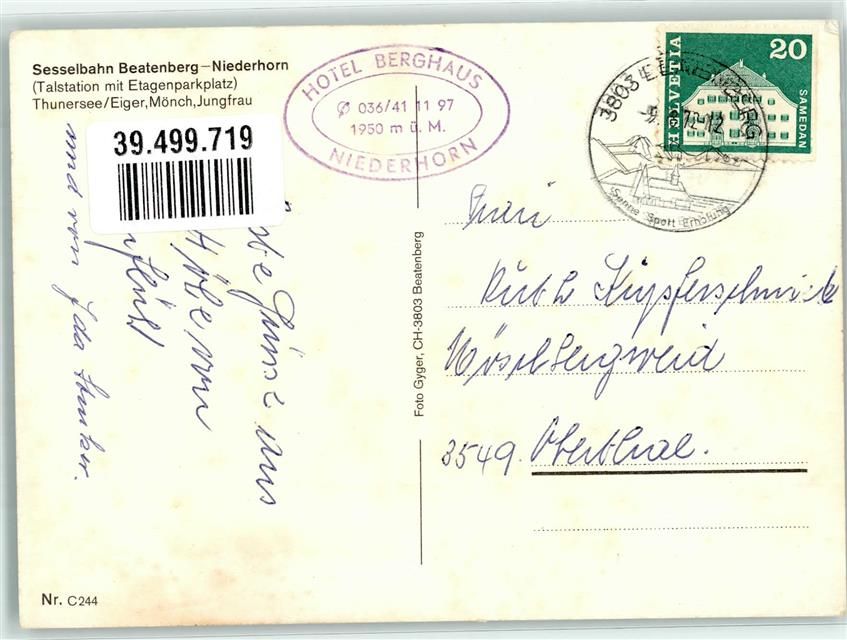 Sesselbahn Beatenberg–Niederhorn
(Talstation mit Etagenparkplatz)
Thunersee/Eiger,Mönch,Jungfrau
39.499.719
HOTEL BERGHAUS
036/41 11 97
1950 m ü. M.
NIEDERHORN
HELVETIA
20
SAMEDAN
3803 BEATENBERG
Sonne Sport Erholung
Grüsse aus
und von Ida
Foto Gyger, CH-3803 Beatenberg
Frau
Ruth Kupferschmied
3549. Oberthal.
Nr. C244